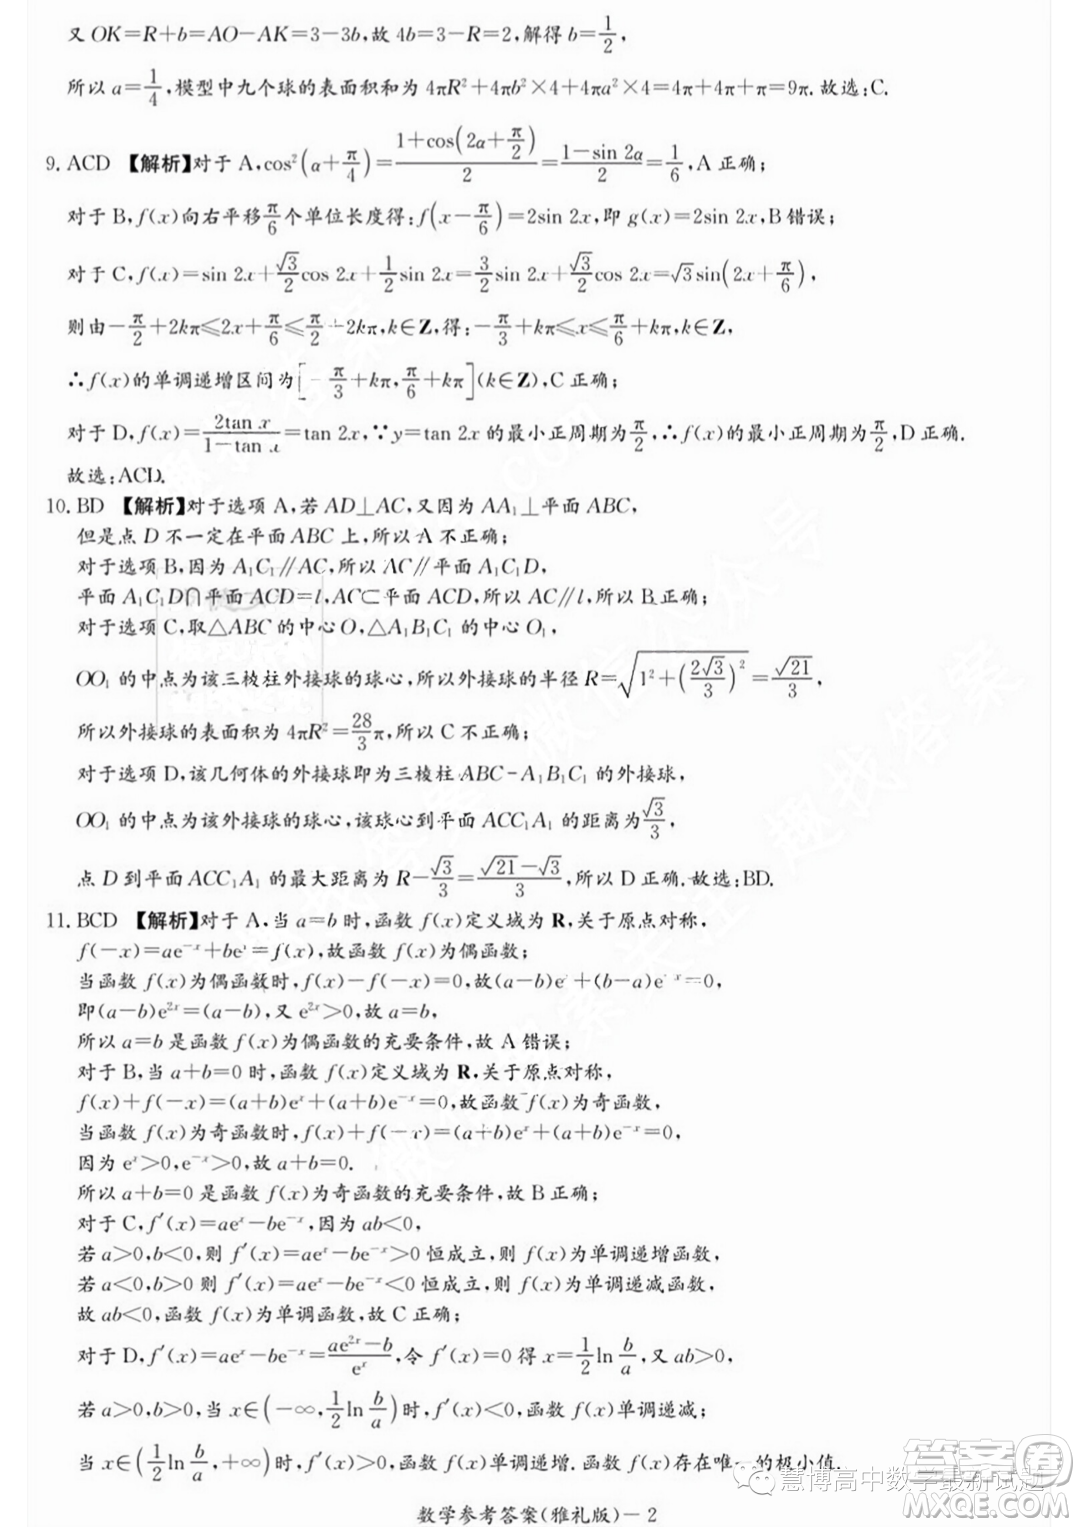 又 OK=R+b=AO-AK=3-3b,故 4b=3-R=2,解得 b=1/2,
所以 a=1/4,模型中九个球的表面积和为 4πR²+4πb²×4+4πa²×4=4π+4π+π=9π.故选:C.
9. ACD 【解析】对于 A,cos²(α+π/4)=(1+cos(2α+π/2))/2=(1-sin 2α)/2=1/6,A 正确;
对于 B,f(x)向右平移π/6个单位长度得:f(x-π/6)=2sin 2x,即 g(x)=2sin 2x,B 错误;
对于 C,f(x)=sin 2x+√3/2 cos 2x+1/2 sin 2x=3/2 sin 2x+√3/2 cos 2x=√3 sin(2x+π/6),
则由-π/2+2kπ≤2x+π/6≤π/2+2kπ,k∈Z,得:-π/3+kπ≤x≤π/6+kπ,
∴f(x)的单调递增区间为[-π/3+kπ,π/6+kπ](k∈Z),C 正确;
对于 D,f(x)=2tan x/(1-tan x)=tan 2x,∵y=tan 2x 的最小正周期为π/2,∴f(x)的最小正周期为π/2,D 正确.
故选:ACD.
10. BD 【解析】对于选项 A,若 AD⊥AC,又因为 AA₁⊥平面 ABC,
但是点 D 不一定在平面 ABC 上,所以 A 不正确;
对于选项 B,因为 A₁C₁∥AC,所以 AC∥平面 A₁C₁D,
平面 A₁C₁D∩平面 ACD=l,AC⊂平面 ACD,所以 AC∥l,所以 B 正确;
对于选项 C,取△ABC 的中心 O,△A₁B₁C₁ 的中心 O₁,
OO₁ 的中点为该三棱柱外接球的球心,所以外接球的半径 R=√(1²+(2√3/3)²)=√21/3,
所以外接球的表面积为 4πR²=28/3π,所以 C 不正确;
对于选项 D,该几何体的外接球即为三棱柱 ABC-A₁B₁C₁ 的外接球,
OO₁ 的中点为该外接球的球心,该球心到平面 ACC₁A₁ 的距离为√3/3,
点 D 到平面 ACC₁A₁ 的最大距离为 R-√3/3=(√21-√3)/3,所以 D 正确.故选:BD.
11. BCD 【解析】对于 A,当 a=b 时,函数 f(x)定义域为 R,关于原点对称,
f(-x)=ae⁻ˣ+beˣ=f(x),故函数 f(x)为偶函数;
当函数 f(x)为偶函数时,f(x)-f(-x)=0,故(a-b)eˣ+(b-a)e⁻ˣ=0,
即(a-b)e²ˣ=(a-b),又 e²ˣ>0,故 a=b,
所以 a=b 是函数 f(x)为偶函数的充要条件,故 A 错误;
对于 B,当 a+b=0 时,函数 f(x)定义域为 R,关于原点对称,
f(x)+f(-x)=(a+b)eˣ+(a+b)e⁻ˣ=0,故函数 f(x)为奇函数,
当函数 f(x)为奇函数时,f(x)+f(-x)=(a+b)eˣ+(a+b)e⁻ˣ=0,
因为 eˣ>0,e⁻ˣ>0,故 a+b=0.
所以 a+b=0 是函数 f(x)为奇函数的充要条件,故 B 正确;
对于 C,f′(x)=aeˣ-be⁻ˣ,因为 ab<0,
若 a>0,b<0,则 f′(x)=aeˣ-be⁻ˣ>0 恒成立,则 f(x)为单调递增函数,
若 a<0,b>0 则 f′(x)=aeˣ-be⁻ˣ<0 恒成立,则 f(x)为单调递减函数,
故 ab<0,函数 f(x)为单调函数,故 C 正确;
对于 D,f′(x)=aeˣ-be⁻ˣ=(ae²ˣ-b)/eˣ,令 f′(x)=0 得 x=1/2 ln b/a,又 ab>0,
若 a>0,b>0,当 x∈(-∞,1/2 ln b/a)时,f′(x)<0,函数 f(x)单调递减;
当 x∈(1/2 ln b/a,+∞)时,f′(x)>0,函数 f(x)单调递增.函数 f(x)存在唯一的极小值.
数学参考答案(雅礼版)-2
慧博高中数学最新试题
答案圈
MXQE.COM